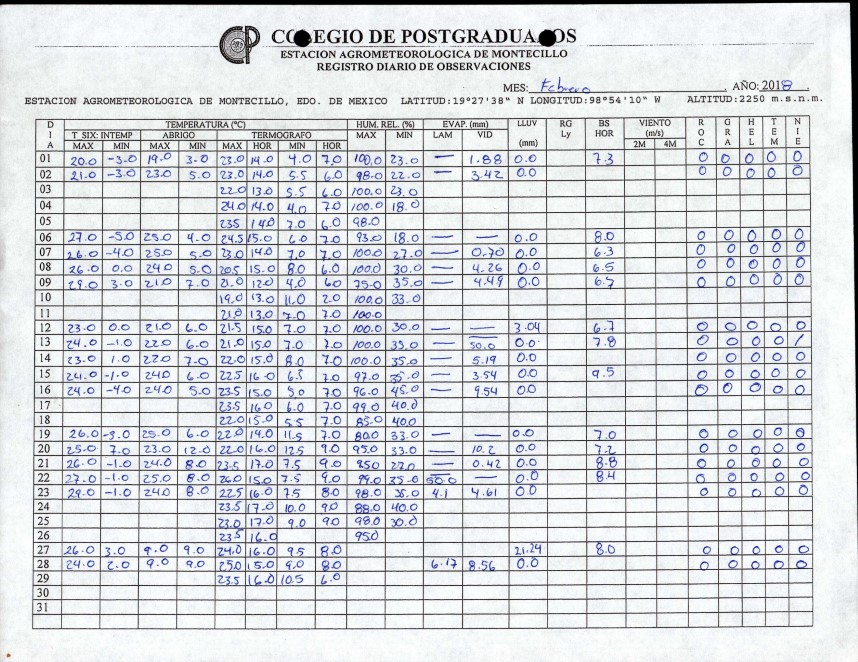 COLEGIO DE POSTGRADUADOS
ESTACION AGROMETEOROLOGICA DE MONTECILLO
REGISTRO DIARIO DE OBSERVACIONES
MES: Febrero . AÑO: 2018 .
ESTACION AGROMETEOROLOGICA DE MONTECILLO, EDO. DE MEXICO LATITUD:19°27'38" N LONGITUD:98°54'10" W ALTITUD:2250 m.s.n.m.
DIA TEMPERATURA (°C) HUM. REL. (%) EVAP. (mm) LLUV (mm) RG Ly BS HOR VIENTO (m/s) ROC GRA HEL TEM NIE
T SIX: INTEMP ABRIGO TERMOGRAFO
MAX MIN MAX MIN MAX HOR MIN HOR MAX MIN LAM VID 2M 4M
01 20.0 -3.0 19.0 3.0 23.0 14.0 4.0 7.0 100.0 23.0 — 1.88 0.0 7.3 0 0 0 0 0
02 21.0 -3.0 23.0 5.0 23.0 14.0 5.5 6.0 98.0 22.0 — 3.42 0.0 0 0 0 0 0
03 22.0 13.0 5.5 6.0 100.0 23.0
04 24.0 14.0 4.0 7.0 100.0 18.0
05 23.5 14.0 7.0 6.0 98.0
06 27.0 -5.0 25.0 4.0 24.5 15.0 6.0 7.0 93.0 18.0 — — 0.0 8.0 0 0 0 0 0
07 26.0 -4.0 25.0 5.0 23.0 14.0 7.0 7.0 100.0 27.0 — 0.70 0.0 6.3 0 0 0 0 0
08 26.0 0.0 24.0 5.0 20.5 15.0 8.0 6.0 100.0 30.0 — 4.26 0.0 6.5 0 0 0 0 0
09 29.0 3.0 21.0 7.0 21.0 12.0 4.0 6.0 75.0 35.0 — 4.49 0.0 6.7 0 0 0 0 0
10 19.0 13.0 11.0 2.0 100.0 33.0
11 21.0 13.0 7.0 7.0 100.0
12 23.0 0.0 21.0 6.0 21.5 15.0 7.0 7.0 100.0 30.0 — — 3.04 6.7 0 0 0 0 0
13 24.0 -1.0 22.0 6.0 21.0 15.0 7.0 7.0 100.0 33.0 — 50.0 0.0 7.8 0 0 0 0 /
14 23.0 1.0 22.0 7.0 22.0 15.0 8.0 7.0 100.0 35.0 — 5.19 0.0 0 0 0 0 0
15 24.0 -1.0 24.0 6.0 22.5 16.0 6.5 7.0 97.0 35.0 — 3.54 0.0 9.5 0 0 0 0 0
16 24.0 -4.0 24.0 5.0 23.5 15.0 5.0 7.0 96.0 45.0 — 9.54 0.0 0 0 0 0 0
17 23.5 16.0 6.0 7.0 99.0 40.0
18 22.0 15.0 5.5 7.0 85.0 40.0
19 26.0 -3.0 25.0 6.0 22.0 14.0 11.5 7.0 80.0 33.0 — — 0.0 7.0 0 0 0 0 0
20 25.0 7.0 23.0 12.0 22.0 16.0 12.5 9.0 95.0 33.0 — 10.2 0.0 7.2 0 0 0 0 0
21 26.0 -1.0 24.0 8.0 23.5 17.0 7.5 9.0 85.0 27.0 — 0.42 0.0 8.8 0 0 0 0 0
22 27.0 -1.0 25.0 8.0 26.0 15.0 7.5 9.0 99.0 35.0 50.0 — 0.0 8.4 0 0 0 0 0
23 29.0 -1.0 24.0 8.0 22.5 16.0 7.5 8.0 98.0 35.0 4.1 4.61 0.0 0 0 0 0 0
24 23.5 17.0 10.0 9.0 88.0 40.0
25 23.0 17.0 9.0 9.0 98.0 30.0
26 23.5 16.0 95.0
27 26.0 3.0 9.0 9.0 24.0 16.0 9.5 8.0 21.24 8.0 0 0 0 0 0
28 24.0 2.0 9.0 9.0 25.0 15.0 9.0 8.0 6.17 8.56 0.0 0 0 0 0 0
29 23.5 16.0 10.5 6.0
30
31